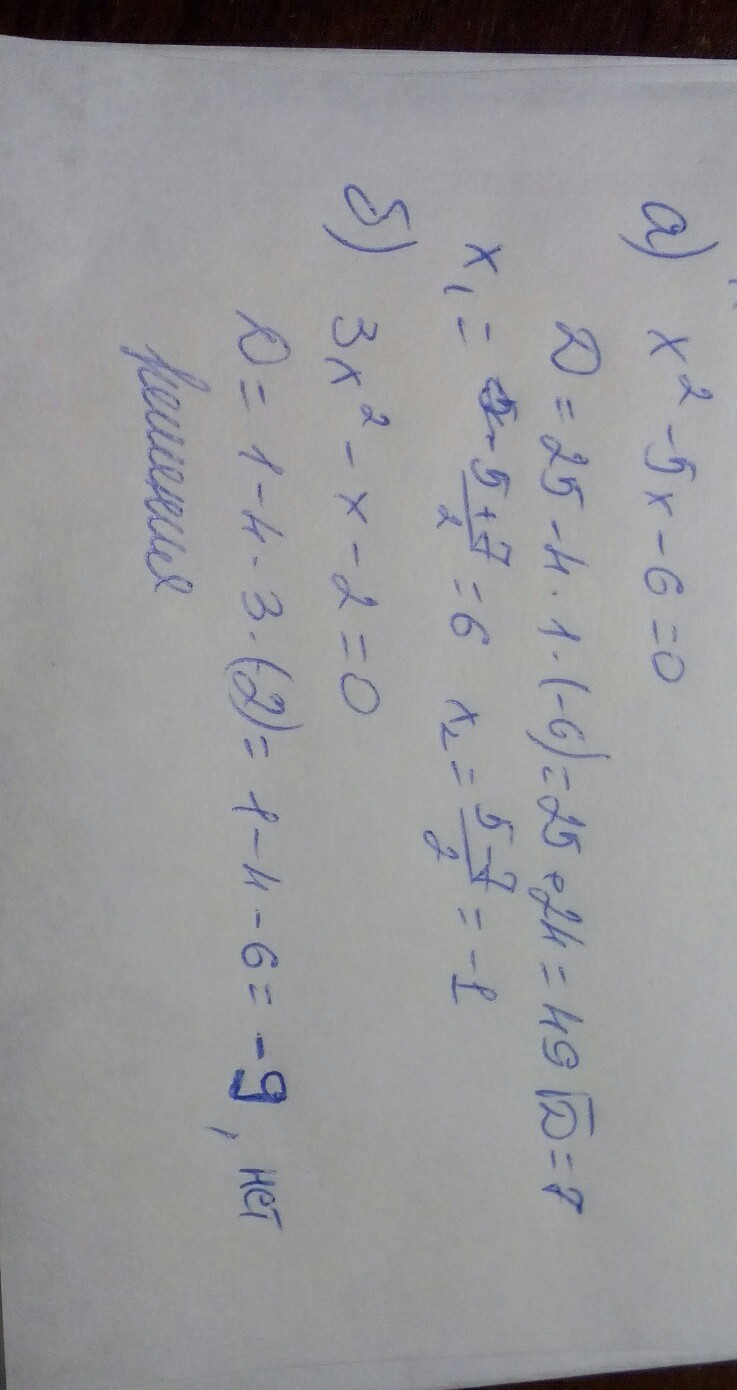 а) x² - 5x - 6 = 0
D = 25 - 4 · 1 · (-6) = 25 + 24 = 49 √D = 7
x₁ = 5 + 7 / 2 = 6 x₂ = 5 - 7 / 2 = -1
б) 3x² - x - 2 = 0
D = 1 - 4 · 3 · (2) = 1 - 4 - 6 = -9, нет
решения